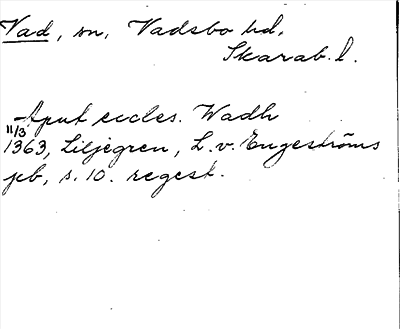 Vad, sn, Vadsbo hd,
Skarab. l.
Aput eccles. Wadh
11/3
1363, Liljegren, L. v. Engeströms
pb, s. 10. regest.